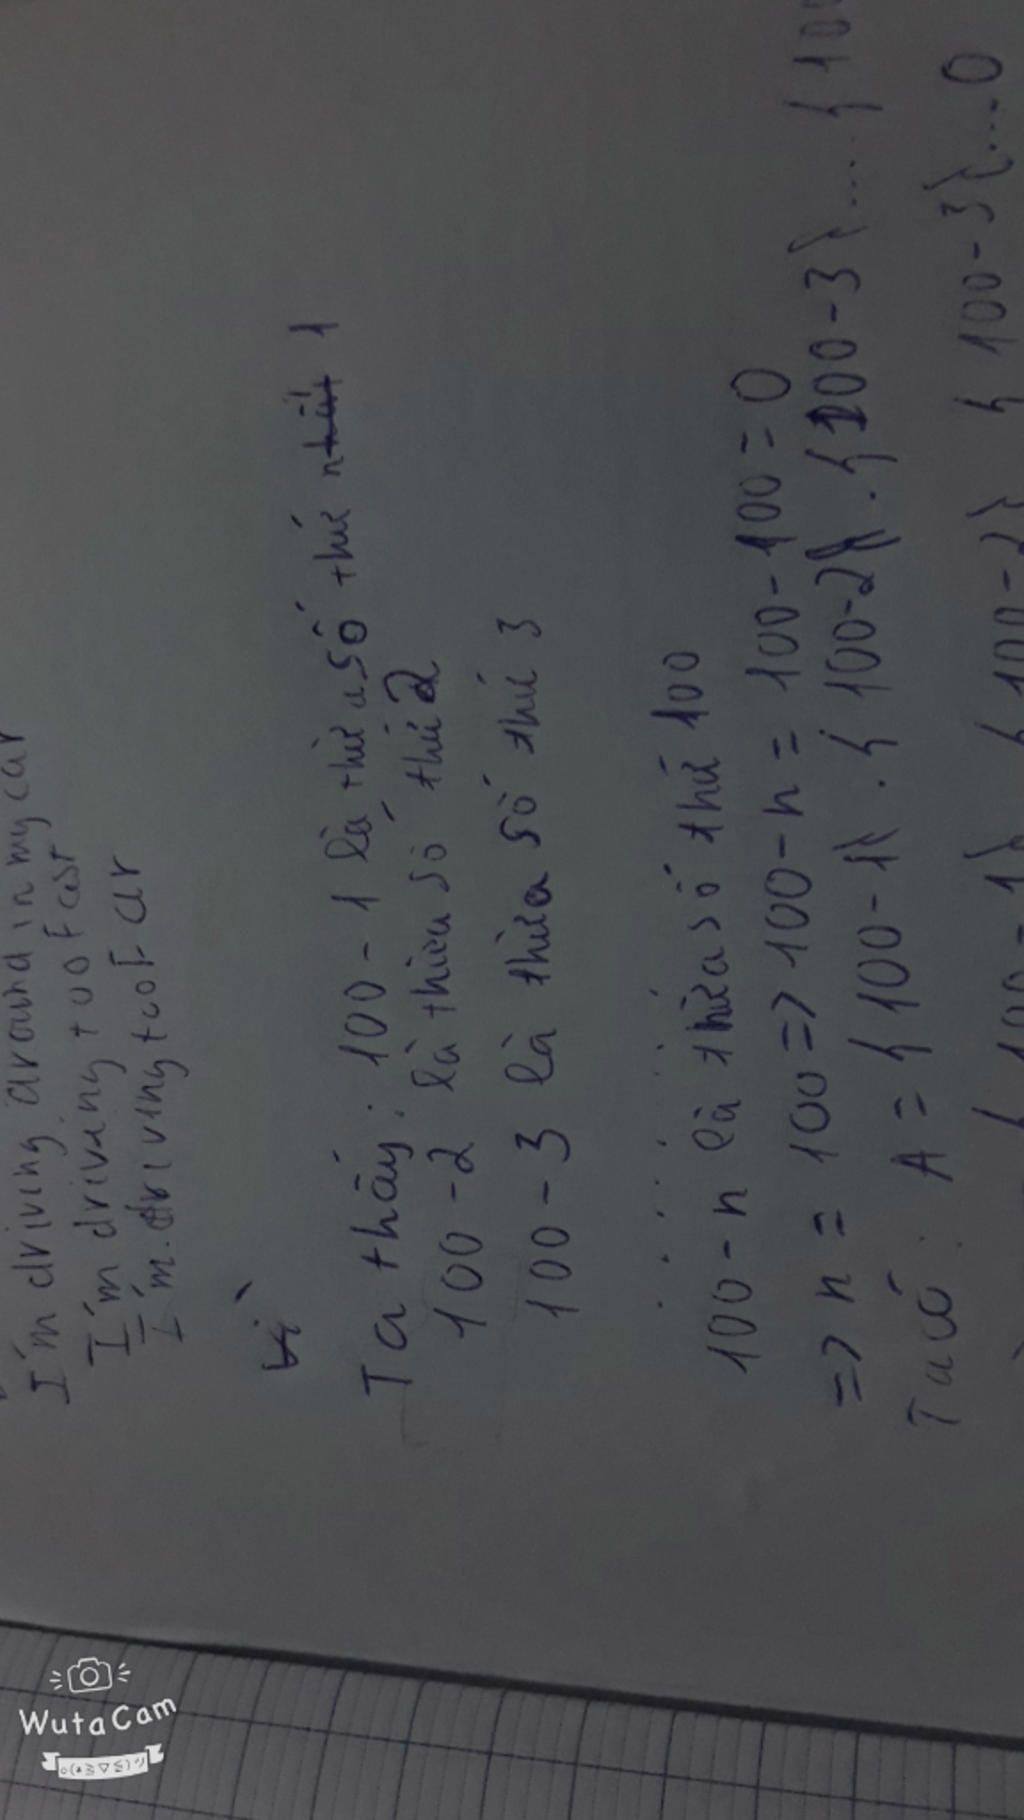 I'm driving around in my car
I'm driving too Fast
I'm driving too Far
Vì
Ta thấy: 100 - 1 là thừa số thứ nhất 1
100 - 2 là thừa số thứ 2
100 - 3 là thừa số thứ 3
. . . . . .
100 - n là thừa số thứ 100
=> n = 100 => 100 - n = 100 - 100 = 0
Ta có: A = {100 - 1}.{100-2}.{100-3}.....{100
{100-1} {100-2} {100-3}....0
WutaCam